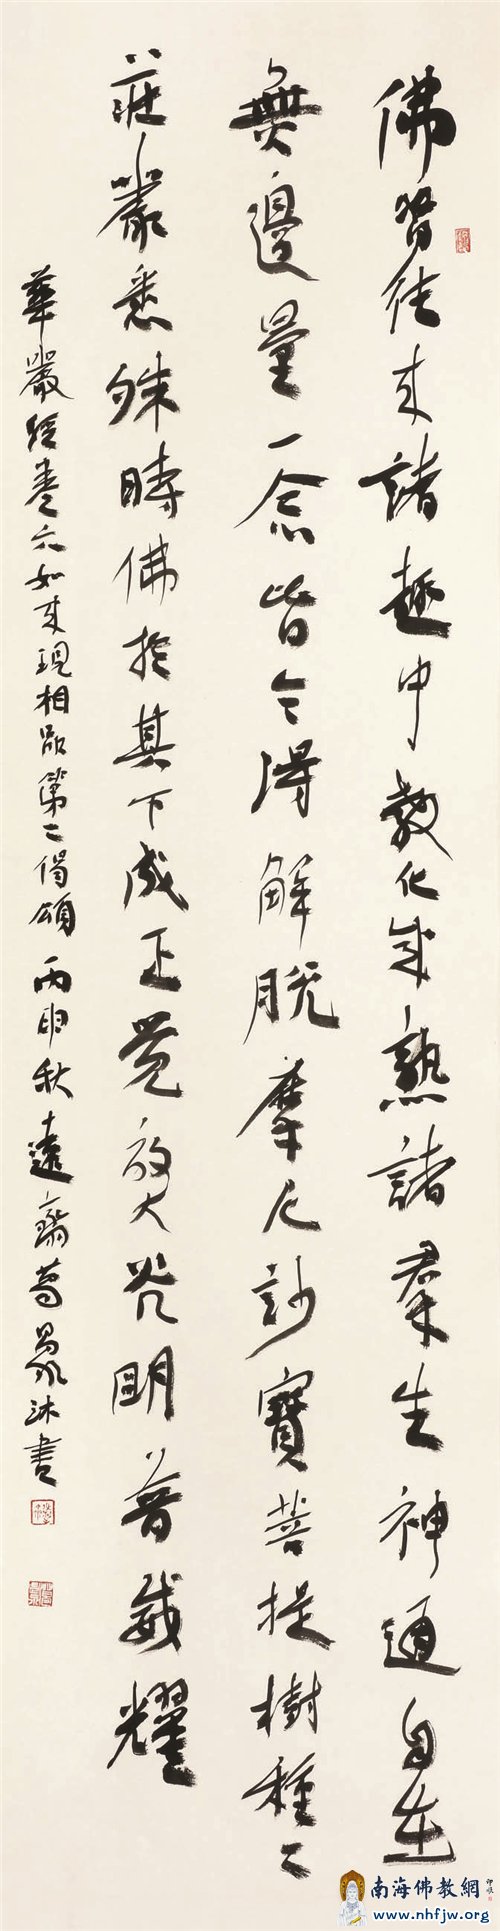 佛昔往來諸趣中教化成熟諸羣生神通自在
無邊量一念皆令得解脫摩尼妙寶菩提樹種々
莊嚴悉殊時佛於其下成正覺放大光明普威耀
華嚴經卷六如來現相品第二偈頌 丙申秋遠齋沐書
南海佛教網
www.nhfjw.org